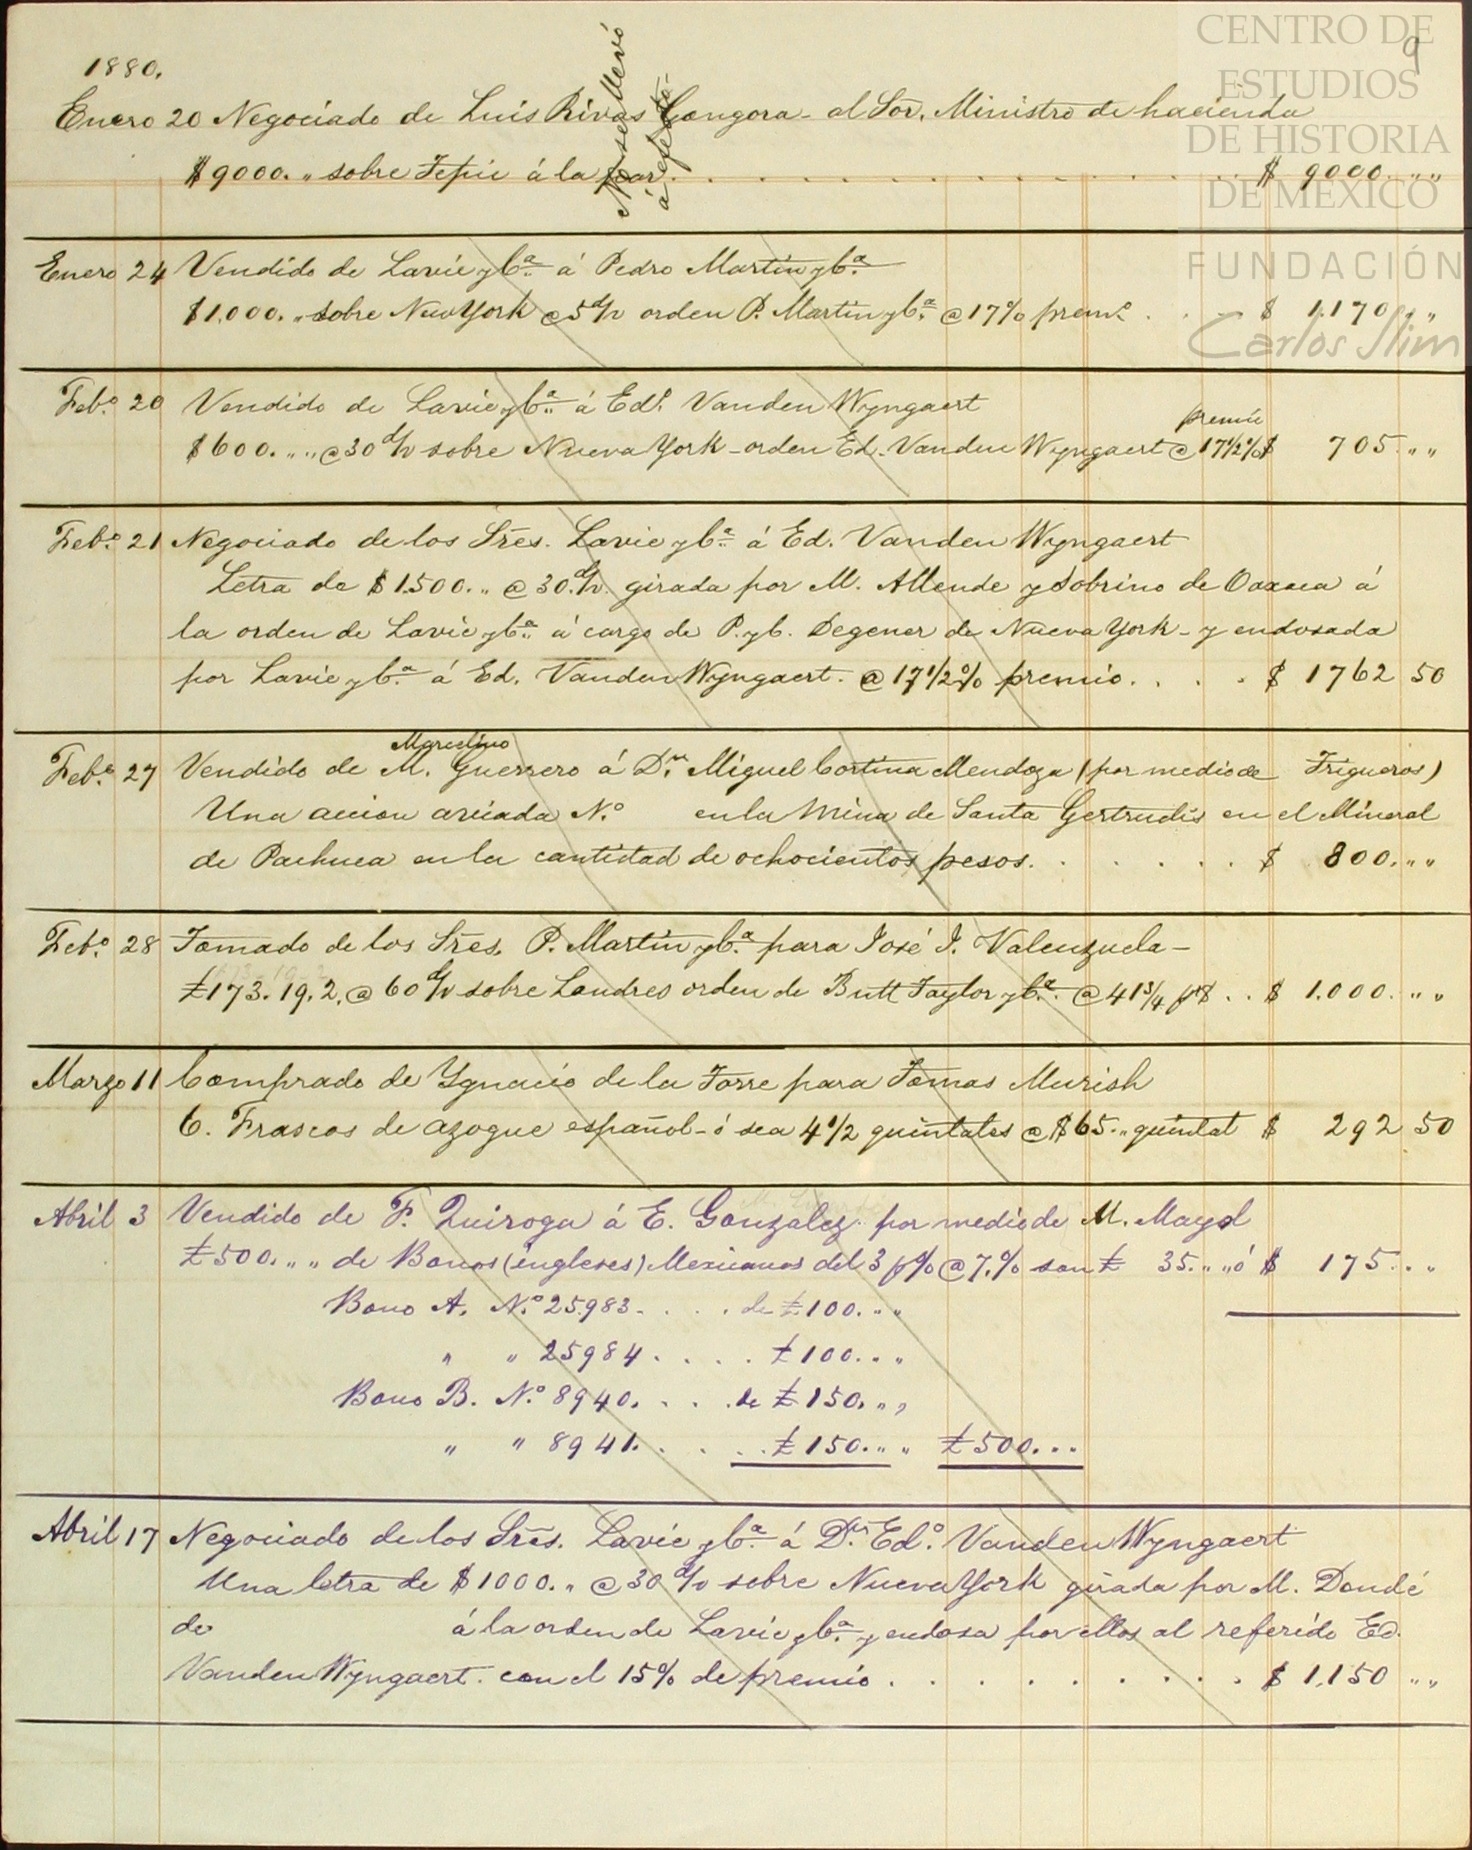 CENTRO DE
ESTUDIOS
DE HISTORIA
DE MÉXICO
FUNDACIÓN
Carlos Slim
9
1880.
Enero 20 Negociado de Luis Rivas Gongora - al Sor. Ministro de hacienda
$9000. „ sobre Tepic á la par. . . . . $ 9000. „ „
No se llevó
á efecto.
Enero 24 Vendido de Lavie y Cª á Pedro Martin y Cª
$1.000. „ sobre New York @ 5 d/v orden P. Martin y Cª @ 17% premº . . $ 1.170. „ „
Febº 20 Vendido de Lavie y Cª á Edº Vanden Wyngaert
$600. „ „ @ 30 d/v sobre Nueva York - orden Ed. Vanden Wyngaert @ 17 1/2% premio $ 705. „ „
Febº 21 Negociado de los Sres. Lavie y Cª á Ed. Vanden Wyngaert
Letra de $1.500. „ @ 30 d/v. girada por M. Allende y Sobrino de Oaxaca á
la orden de Lavie y Cª á cargo de P. y C. Degener de Nueva York - y endosada
por Lavie y Cª á Ed. Vanden Wyngaert. @ 17 1/2% premio. . . . $ 1762 50
Febº 27 Vendido de M. Marcelino Guerrero á Dn Miguel Cortina Mendoza (por medio de Trigueros)
Una accion aviada Nº en la Mina de Santa Gertrudis en el Mineral
de Pachuca en la cantidad de ochocientos pesos. . . . . . $ 800. „ „
Febº 28 Tomado de los Sres. P. Martin y Cª para José I. Valenzuela -
£173. 19. 2. @ 60 d/v sobre Londres orden de Butt Taylor y Cª. @ 41 3/4 p$ . . $ 1.000. „ „
Marzo 11 Comprado de Ygnacio de la Torre para Tomas Murish
6. Frascos de azogue español - ó sea 4 1/2 quintales @ $65. „ quintal $ 292 50
Abril 3 Vendido de F. Quiroga á E. Gonzalez por medio de M. Mayol
£500. „ „ de Bonos (ingleses) Mexicanos del 3 p% @ 7.% son £ 35. „ „ ó $ 175. . „
Bono A. Nº 25983. . . . de £100. „ „
„ „ 25984. . . . £100. . „
Bono B. Nº 8940. . . . de £150. „ „
„ „ 8941. . . . £150. „ „ £500. . .
Abril 17 Negociado de los Sres. Lavie y Cª á Dn Edº Vanden Wyngaert
Una letra de $1000. „ @ 30 d/v sobre Nueva York girada por M. Dondé
de á la orden de Lavie y Cª y endosa por ellos al referido Ed.
Vanden Wyngaert. con el 15% de premio . . . . . . . $ 1.150 „ „